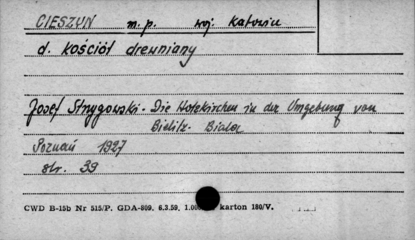 CIESZYN m.p. woj. Katowice
d. kościół drewniany
Josef Strzygowski - Die Holzkirchen in der Umgebung von
Bielitz - Biala
Poznań 1927
str. 39
CWD B-15b Nr 515/P. GDA-809. 6.3.59. 1.00 karton 180/V.